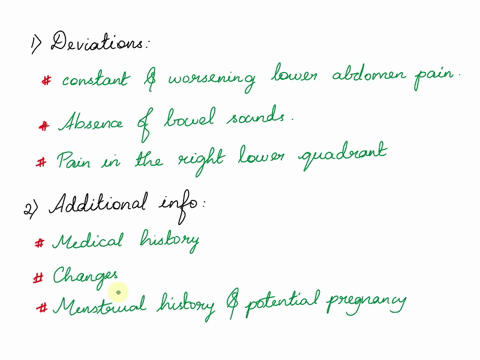 1) Deviations:
# constant & worsening lower abdomen pain.
# Absence of bowel sounds.
# Pain in the right lower quadrant
2) Additional info:
# Medical history
# Changes
# Menstrual history & potential pregnancy